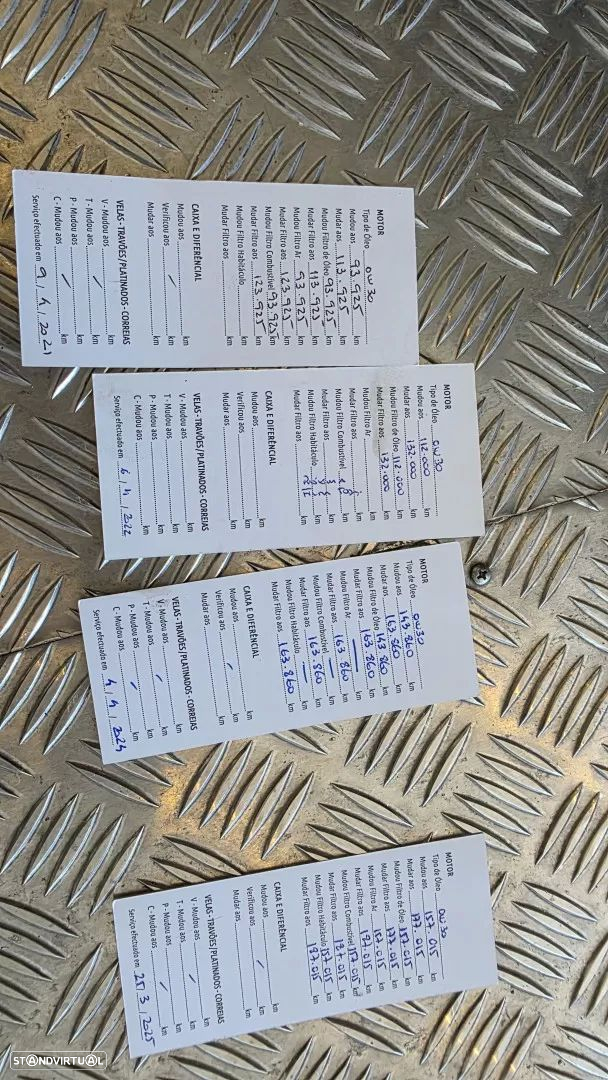 MOTOR
Tipo de Óleo 0W30
Mudou aos 93.925 km
Mudar aos 113.925 km
Mudou Filtro de Óleo 93.925 km
Mudar Filtro aos 113.925 km
Mudou Filtro Ar 93.925 km
Mudar Filtro aos 123.925 km
Mudou Filtro Combustível 93.925 km
Mudar Filtro aos 123.925 km
Mudou Filtro Habitáculo km
Mudar Filtro aos km
CAIXA E DIFERÊNCIAL
Mudou aos km
Verificou aos km
Mudar aos km
VELAS - TRAVÕES/PLATINADOS - CORREIAS
V - Mudou aos km
T - Mudou aos km
P - Mudou aos km
C - Mudou aos km
Serviço efectuado em 9/4/2021
MOTOR
Tipo de Óleo 0W30
Mudou aos 112.000 km
Mudar aos 132.000 km
Mudou Filtro de Óleo 112.000 km
Mudar Filtro aos 132.000 km
Mudou Filtro Ar km
Mudar Filtro aos km
Mudou Filtro Combustível km
Mudar Filtro aos km
Mudou Filtro Habitáculo km
Mudar Filtro aos km
CAIXA E DIFERÊNCIAL
Mudou aos km
Verificou aos km
Mudar aos km
VELAS - TRAVÕES/PLATINADOS - CORREIAS
V - Mudou aos km
T - Mudou aos km
P - Mudou aos km
C - Mudou aos km
Serviço efectuado em 6/4/2022
MOTOR
Tipo de Óleo 0W30
Mudou aos 143.860 km
Mudar aos 163.860 km
Mudou Filtro de Óleo 143.860 km
Mudar Filtro aos 163.860 km
Mudou Filtro Ar km
Mudar Filtro aos 163.860 km
Mudou Filtro Combustível km
Mudar Filtro aos 163.860 km
Mudou Filtro Habitáculo km
Mudar Filtro aos 163.860 km
CAIXA E DIFERÊNCIAL
Mudou aos km
Verificou aos km
Mudar aos km
VELAS - TRAVÕES/PLATINADOS - CORREIAS
V - Mudou aos km
T - Mudou aos km
P - Mudou aos km
C - Mudou aos km
Serviço efectuado em 4/4/2024
MOTOR
Tipo de Óleo 0W30
Mudou aos 157.015 km
Mudar aos 177.015 km
Mudou Filtro de Óleo 157.015 km
Mudar Filtro aos 177.015 km
Mudou Filtro Ar 157.015 km
Mudar Filtro aos 187.015 km
Mudou Filtro Combustível 157.015 km
Mudar Filtro aos 187.015 km
Mudou Filtro Habitáculo 157.015 km
Mudar Filtro aos 187.015 km
CAIXA E DIFERÊNCIAL
Mudou aos km
Verificou aos km
Mudar aos km
VELAS - TRAVÕES/PLATINADOS - CORREIAS
V - Mudou aos km
T - Mudou aos km
P - Mudou aos km
C - Mudou aos km
Serviço efectuado em 25/3/2025
STANDVIRTUAL